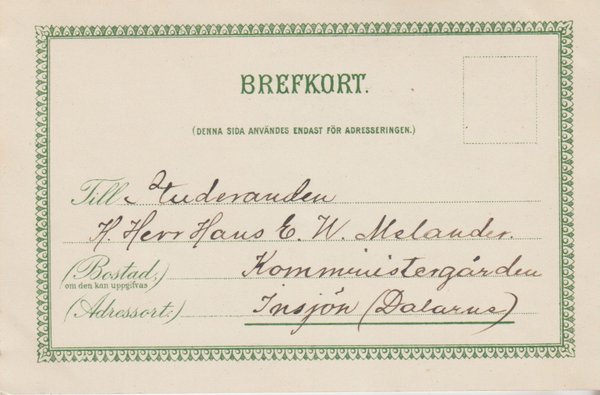 BREFKORT.
(DENNA SIDA ANVÄNDES ENDAST FÖR ADRESSERINGEN.)
Till Studeranden
H. Herr Hans E. W. Melander.
(Bostad,) Komministergården
om den kan uppgifvas
(Adressort:) Insjön (Dalarne)